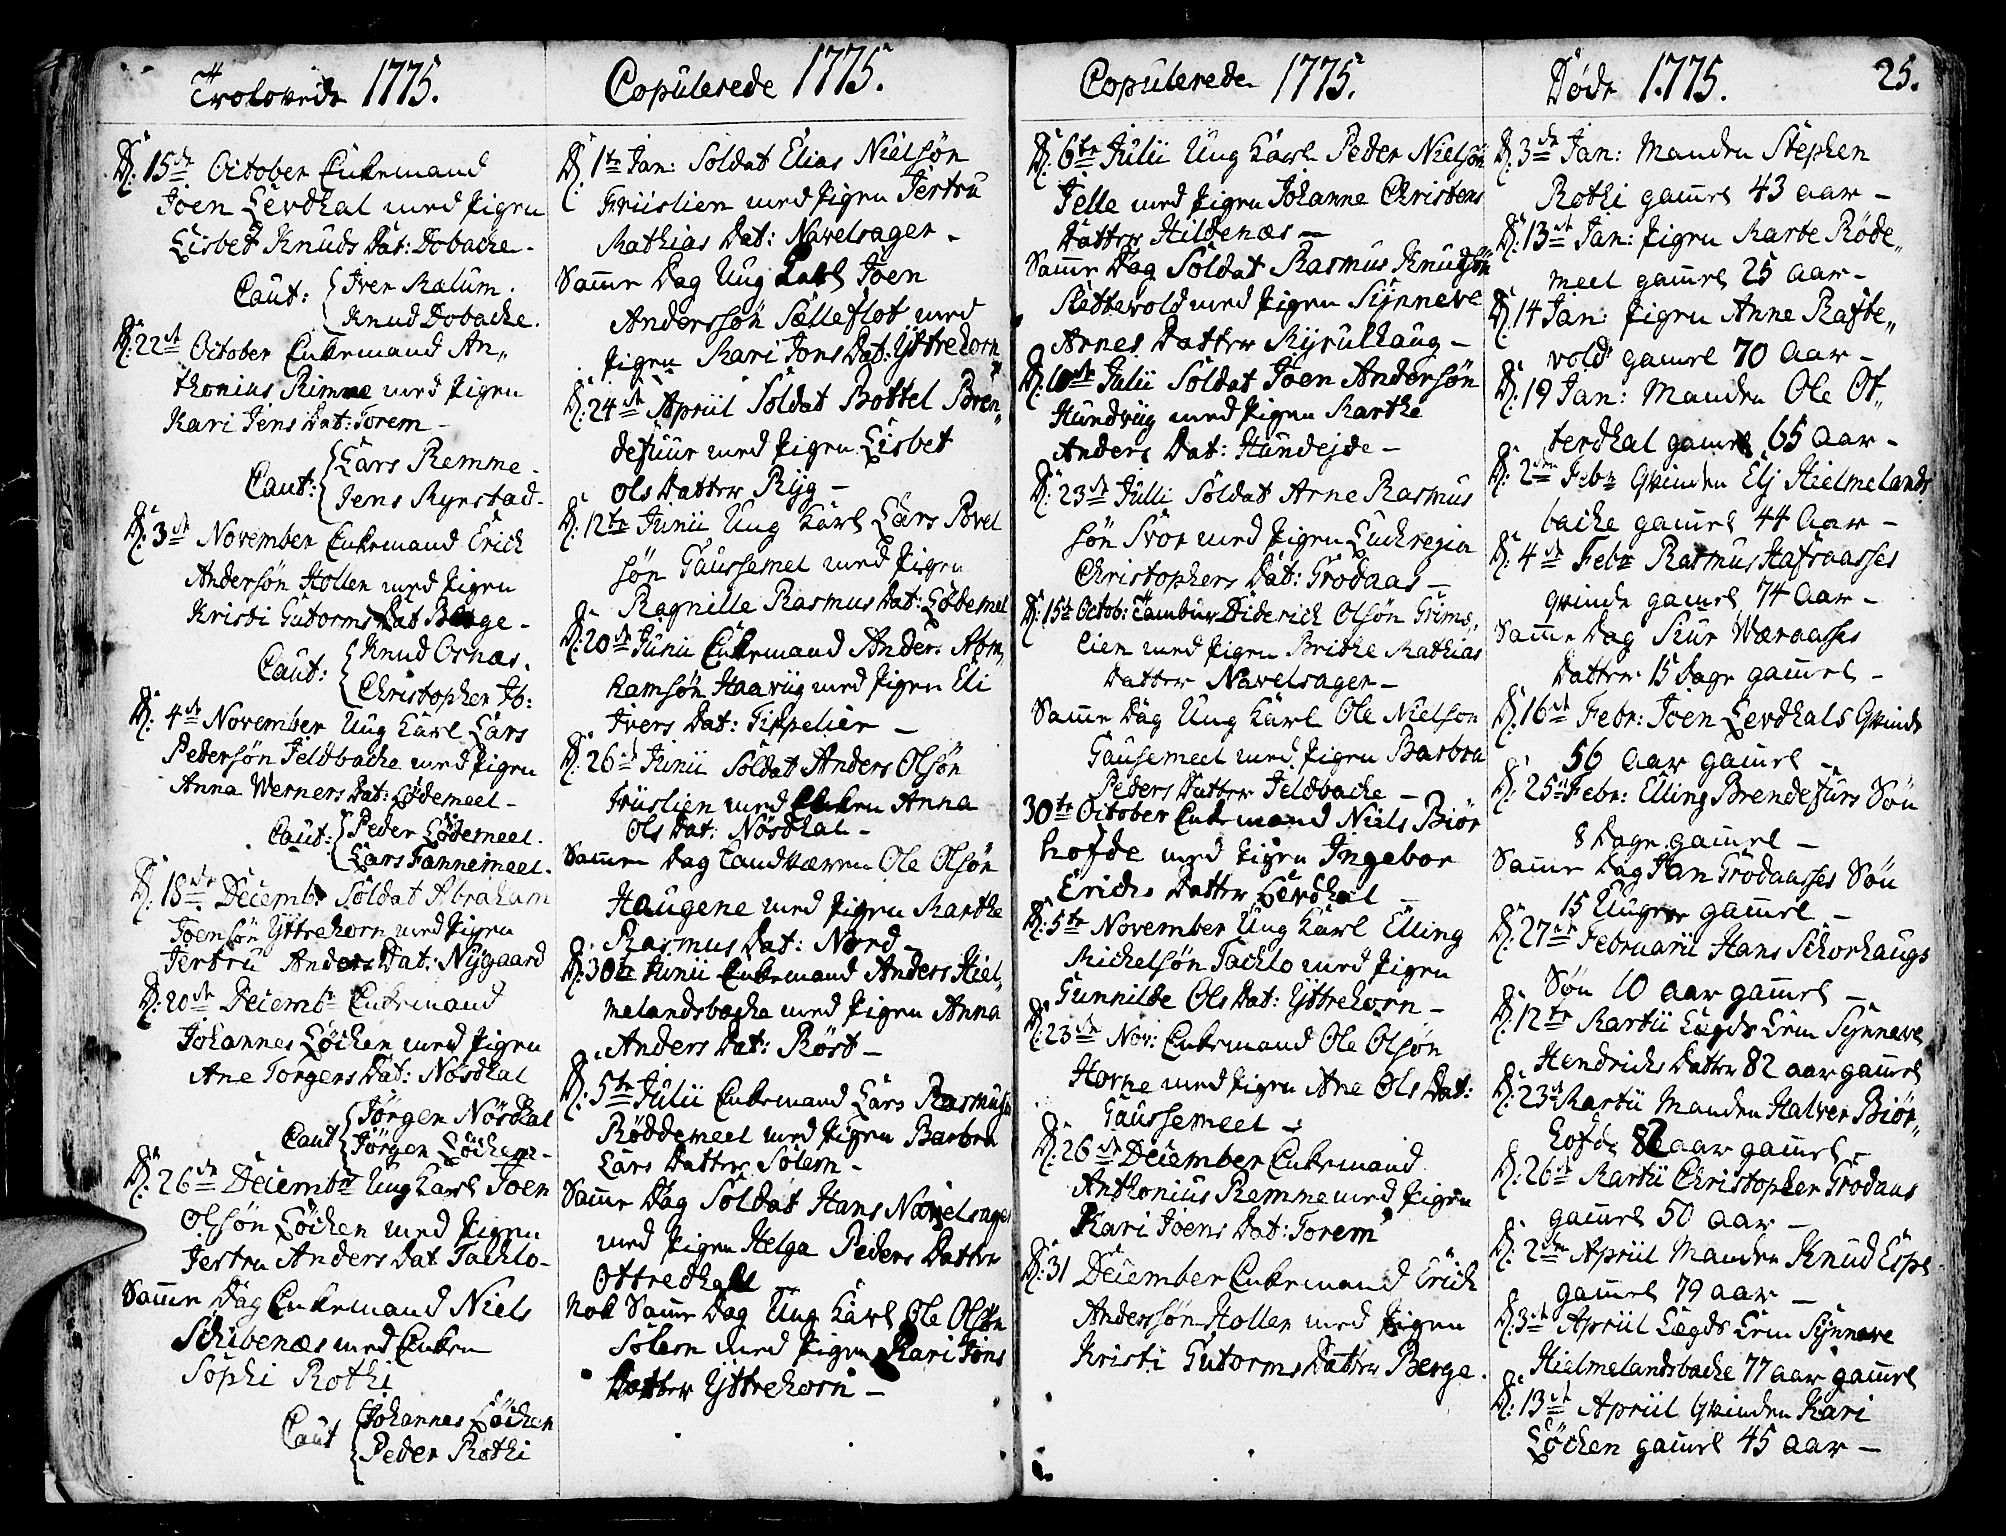 Trolovede 1775.
D: 15de October Enkemand
Joen Levdhal med Pigen
Lisbet Knuds Dat: Dobache -
Caut: Iver Mælum.
Knud Dobache.
D: 22de October Enkemand An„
thonius Rimme med Pigen
Kari Jens Dat: Torem -
Caut: Lars Remme -
Jens Myrstad -
D: 3de November Enkemand Erich
Andersøn Hollen med Pigen
Kristi Gutorms Dat Berge -
Caut: Knud Ornæs.
Christopher Ib:
D: 4de November Ung Karl Lars
Pedersøn Jeldbache med Pigen
Anna Werners Dat: Lødemeel -
Caut: Peder Lødemeel.
Lars Fannemeel.
D: 18de Decembr Soldat Abraham
Joensøn Yttrehorn med Pigen
Jertru Anders Dat: Nygaard
D: 20de Decembr Enkemand
Johannes Løchen med Pigen
Ane Torgers Dat: Nosdhal
Caut Jørgen Nosdhal
Jørgen Løchen -
D: 26de Decembr Ung Karl Joen
Olsøn Løchen med Pigen
Jertru Anders Dat Tachlo -
Samme Dag Enkemand Niels
Schibenæs med Enken
Sophi Rothi
Caut Johannes Løchen
Peder Rothi
Copulerede 1775.
D: 1te Jan: Soldat Elias Nielsøn
Friislien med Pigen Jertru
Mathias Dat: Navelsager -
Samme Dag Ung Karl Joen
Anderssøn Sælleflot med
Pigen Kari Jons Dat: Yttrehorn
D: 24de Apriil Soldat Bottel Bren„
defuur med Pigen Lisbet
Ols Datter Ryg -
D: 12te Junii Ung Karl Lars Povel
søn Gaussemel med Pigen
Ragnille Rasmus Dat: Lødemel
D: 20de Junii Enkemand Anders Abra„
hamsøn Haaviig med Pigen Eli
Ivers Dat: Tippelier -
D: 26de Junii Soldat Anders Olsøn
Friislien med Enken Anna
Ols Dat: Nosdhal -
Samme Dag Landværn Ole Olsøn
Haugene med Pigen Marthe
Rasmus Dat: Nord -
D: 30te Junii Enkemand Anders Hiel„
melandsbache med Pigen Anna
Anders Dat: Røst -
D: 5te Julii Enkemand Lars Rasmusøn
Røddemeel med Pigen Barbra
Lars Datter Solem -
Samme Dag Soldat Hans Navelsager
med Pigen Helga Peders Datter
Ottredhal
Nok Samme Dag Ung Karl Ole Olsøn
Solem med Pigen Kari Jons
Datter Yttrehorn -
Copulerede 1775.
D: 6te Julii Ung Karl Peder Nielsøn
Jelle med Pigen Johanne Christens
Datter Hildenæs -
Samme Dag Soldat Rasmus Knudsøn
Sættevold med Pigen Synneve
Arnes Datter Myrulhaug -
D: 10de Julii Soldat Joen Andersøn
Hundviig med Pigen Marthe
Anders Dat: Hundejde -
D: 23de Julli Soldat Arne Rasmus
søn Svor med Pigen Luchregia
Christophers Dat: Grodaas -
D: 15de Octob: Tambur Diderich Olsøn Grims„
lien med Pigen Brithe Mathias
Datter Navelsager -
Samme Dag Ung Karl Ole Nielson
Gausemeel med Pigen Barbra
Peders Datter Jeldbache -
30te October Enkemand Niels Biør
hofde med Pigen Ingebor
Erichs Datter Levdhal -
D: 5te November Ung Karl Elling
Michelsøn Tachlo med Pigen
Gunnilde Ols Dat: Yttrehorn -
D: 23de Nov: Enkemand Ole Olsøn
Horne med Pigen Ane Ols Dat:
Gaussemeel -
D: 26de December Enkemand
Anthonius Remme med Pigen
Kari Joens Dat: Torem
D: 31 December Enkemand Erich
Anderssøn Hollen med Pigen
Kristi Gutorms Datter Berge.
Døde 1775.
25.
D: 3de Jan: Manden Stephen
Rothi gamel 43 aar -
D: 13de Jan: Pigen Marte Røde„
meel gamel 25 aar -
D: 14 Jan: Pigen Anne Rafte„
vold gamel 70 aar -
D: 19 Jan: Manden Ole Ot„
terdhal gamel 65 aar -
D: 2den Febr Qvinden Elj Hielmelands
bache gamel 44 aar -
D: 4de Febr Rasmus Hafraasses
qvinde gamel 74 aar -
Samme Dag Siur Wæraasses
Datter 15 Dage gamel -
D: 16de Febr: Joen Levdhals Qvinde
56 aar gamel -
D: 25de Febr: Elling Brendefurs Søn
8 Dage gamel -
Samme Dag Jan Grodaasses Søn
15 Uuger gamel -
D: 27de Februarii Hans Schorhaugs
Søn 10 aar gamel -
D: 12te Martii Lægds Lem Synneve
Hendrichs Datter 82 aar gamel
D: 23de Martii Manden Halver Biør„
hofde aar gamel -
D: 26de Martii Christopher Grodaas
gamel 50 aar -
D: 2den Apriil Manden Knud Espe
gamel 79 aar -
D: 3de Apriil Lægds Lem Synneve
Hielmelandsbache 77 aar gamel
D: 13de Apriil Qvinden Kari
Løchen gamel 45 aar -